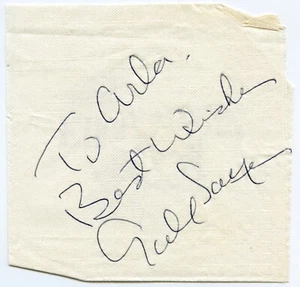 To Arla.
Best Wishes
Gale Sayers